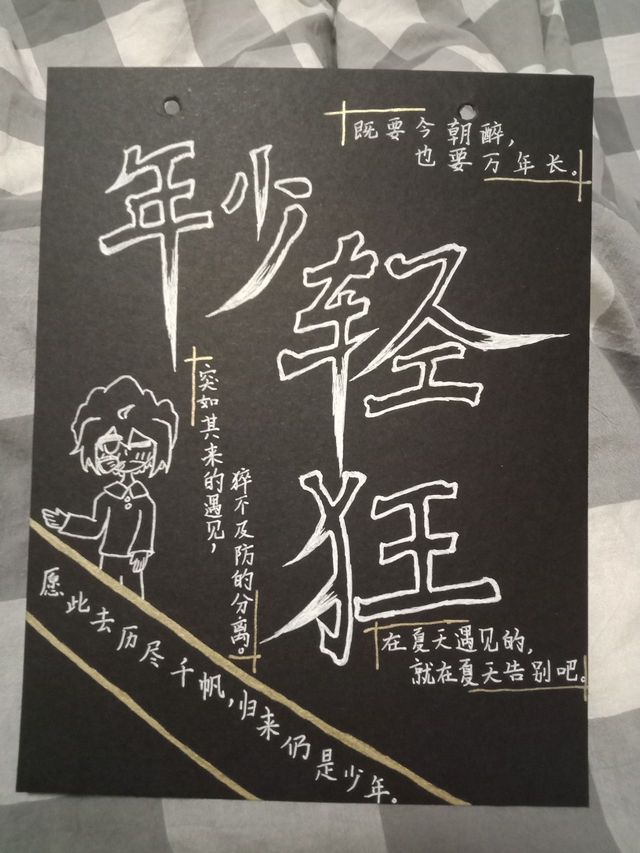 既要今朝醉，
也要万年长。
年少
轻
狂
突如其来的遇见，
猝不及防的分离。
在夏天遇见的，
就在夏天告别吧。
愿此去历尽千帆，归来仍是少年。